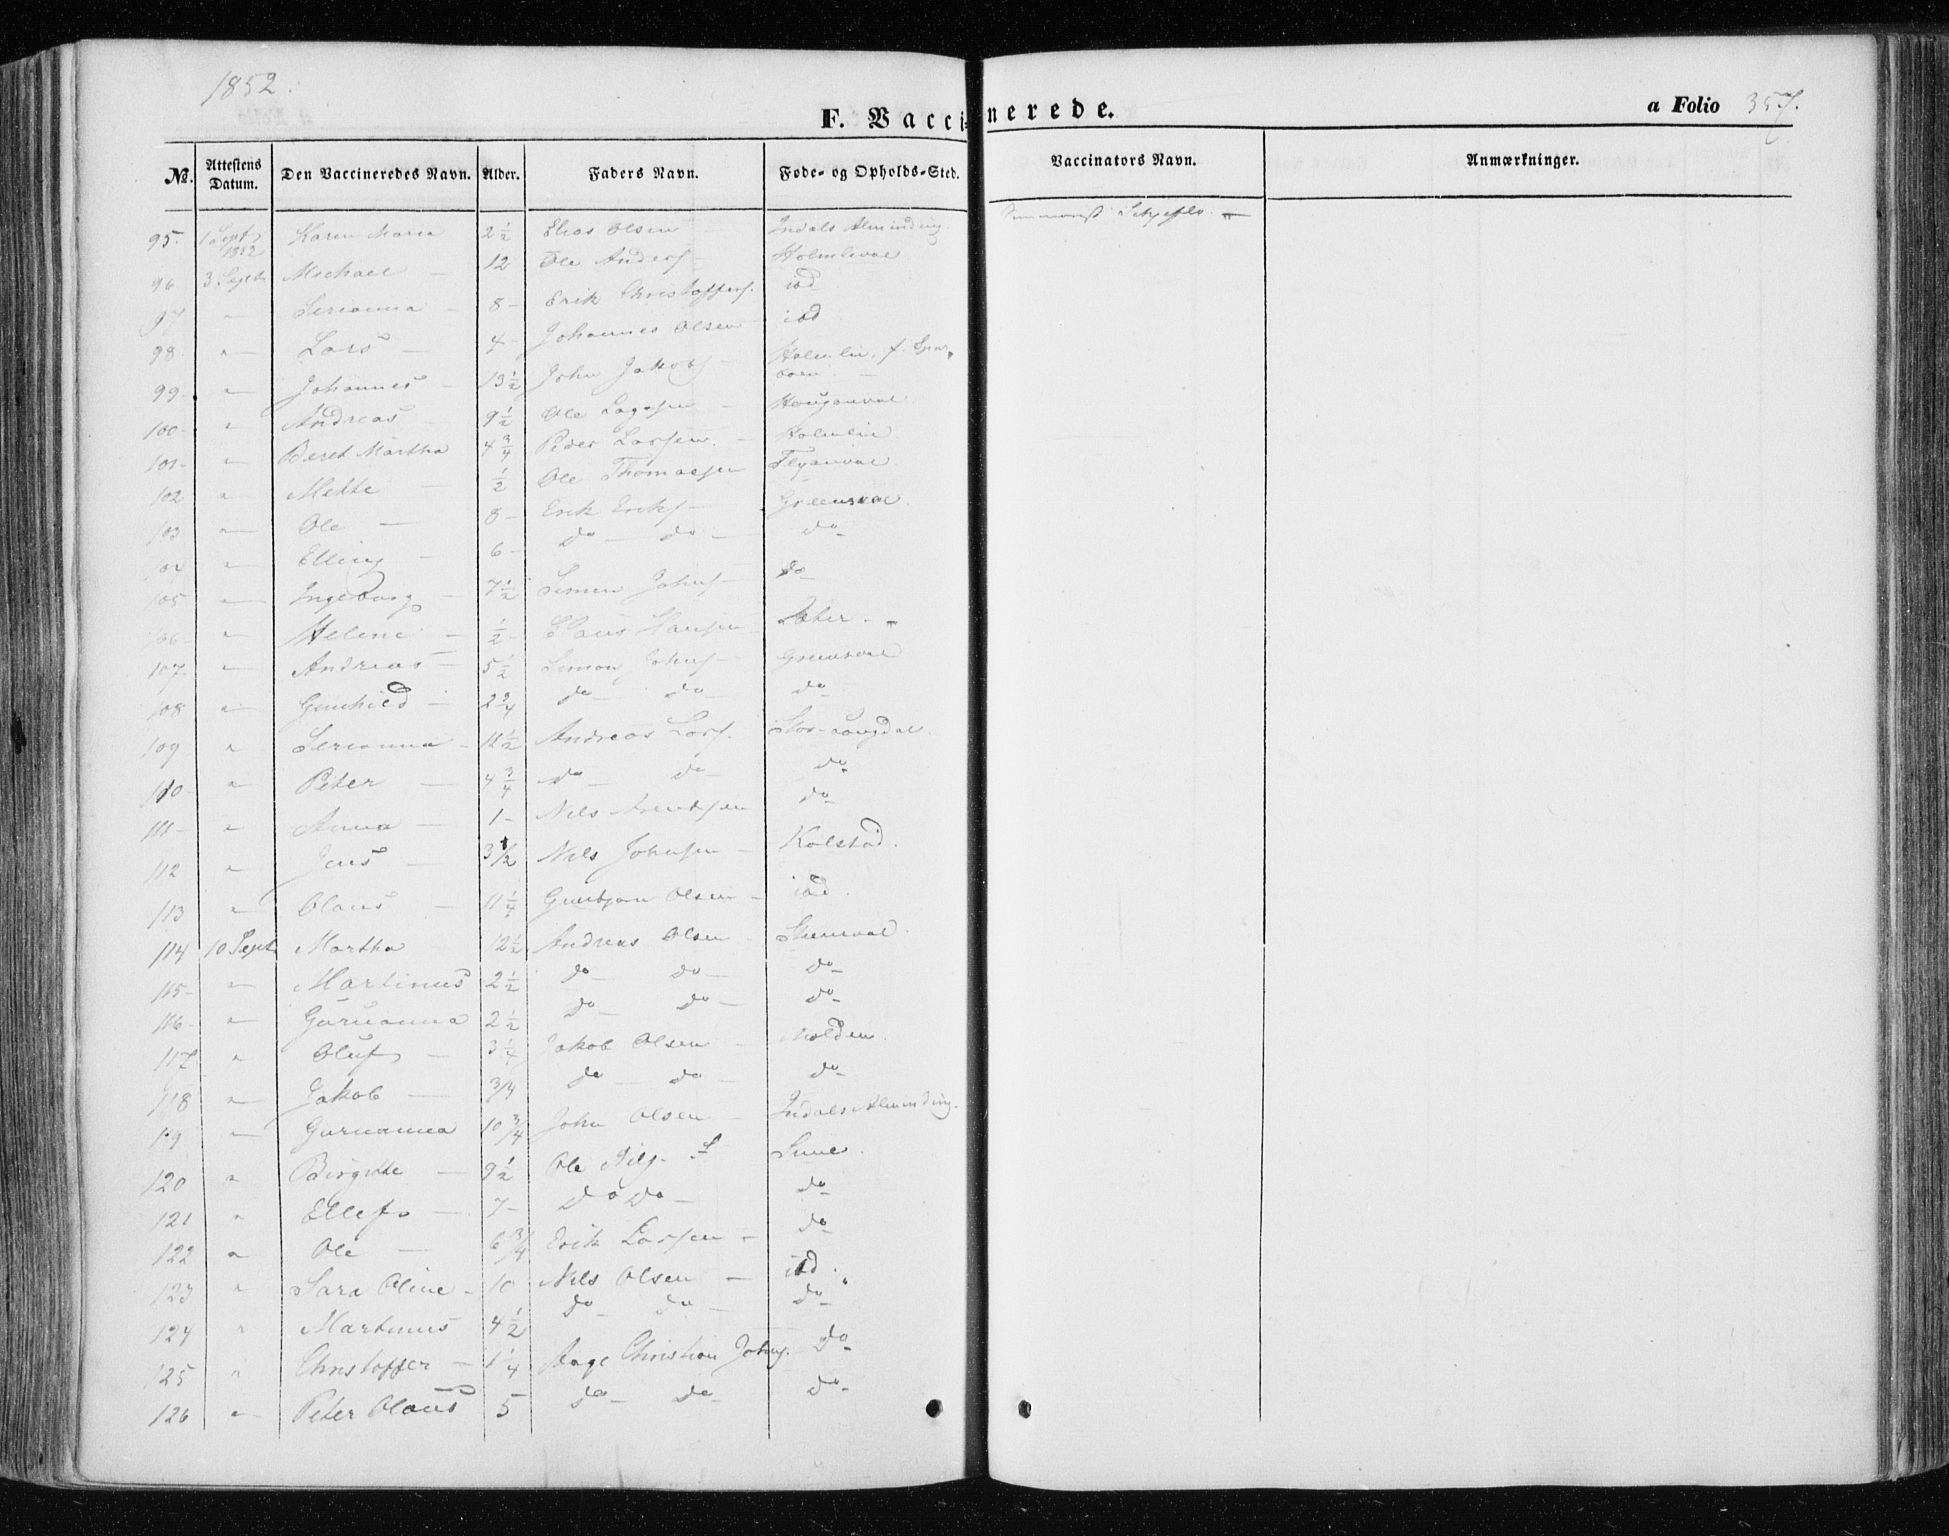 1852.
F. Vaccinerede.
a Folio 357.
No. | Attestens Datum. | Den Vaccineredes Navn. | Alder. | Faders Navn. | Føde- og Opholds-Sted. | Vaccinators Navn. | Anmærkninger.
95. 1 Sept 1852 Karen Maria 2 1/2 Elias Olsen Indals Alminding.
96 3 Sept Michael — 12 Ole Anders
97 " Serianna — 8 — Erik Christoffers. ibd
98 " Lars — 4 — Johannes Olsen ibd
99 " Johannes — 13 1/2 John Jakobs — Holmlie,
100 " Andreas 9 1/2 Ole
101 " Beret Martha 4 3/4 Peder Larsen. — Holmlie
102 " Mette — 1/2 Ole Thomassen
103 " Ole — 8 — Erik Eriks —
104 " Elling — 6 — do — do — do
105 " Ingeborg — 7 1/2 Simen Johns — do
106 " Helene — 1/2 Claus Hansen
107 " Andreas — 5 1/2 Simon Johns —
108 " Gunhild — 2 3/4 do — do — do
109 " Serianna — 11 1/2 Andreas Lars. Stor-Langdal.
110 " Peter — 4 3/4 do — do — do
111 — " Anna — 1 — Nils Arentsen do
112 " Jens — 3 1/2 Nils Johnsen — Kolstad.
113 " Olaus — 11 1/4 Gunbjørn Olsen — ibd.
114 10 Sept Martha 12 1/2 Andreas Olsen
115 — " Martinus 2 1/2 do — do — do
116 — " Gurianna 2 1/2 do — do — do
117 " Oluf — 3 1/4 Jakob Olsen — Molden.
118 " Jakob — 3/4 do — do — do
119 " Gurianna 10 3/4 John Olsen — Indals Alminding.
120 " Birgitte — 9 1/2 Ole Nils.
121 " Ellef — 7 — do do — do
122 " Ole — 6 3/4 Erik Larsen — do
123 " Sara Oline — 10 Nils Olsen — ibd.
124 " Martinus 4 1/2 do — do — do
125 " Christoffer — 1 1/4 Aage Christian Johns. — do
126 " Peter Olaus 5 do — do — do